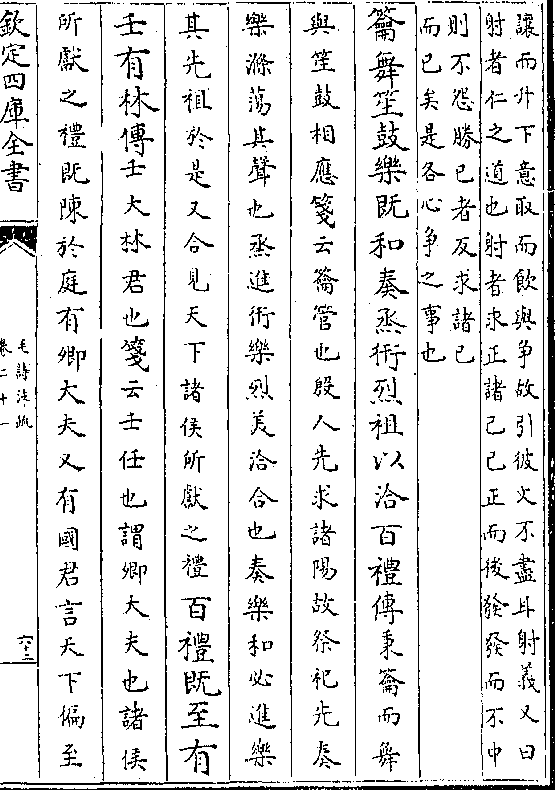 讓而升下意取而飲與爭故引彼文不盡耳射義又曰
射者仁之道也射者求正諸己己正而後發發而不中
則不怨勝己者反求諸己
而已矣是各心爭之事也
籥舞笙鼓樂既和奏烝衎烈祖以洽百禮傳秉籥而舞
與笙鼓相應箋云籥管也殷人先求諸陽故祭祀先奏
樂滌蕩其聲也烝進衎樂烈美洽合也奏樂和必進樂
其先祖於是又合見天下諸侯所獻之禮百禮既至有
壬有林傳壬大林君也箋云壬任也謂卿大夫也諸侯
所獻之禮既陳於庭有卿大夫又有國君言天下徧至
欽定四庫全書
毛詩注疏
卷二十一
六十二